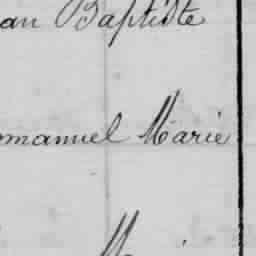 an Baptiste
manuel Marie